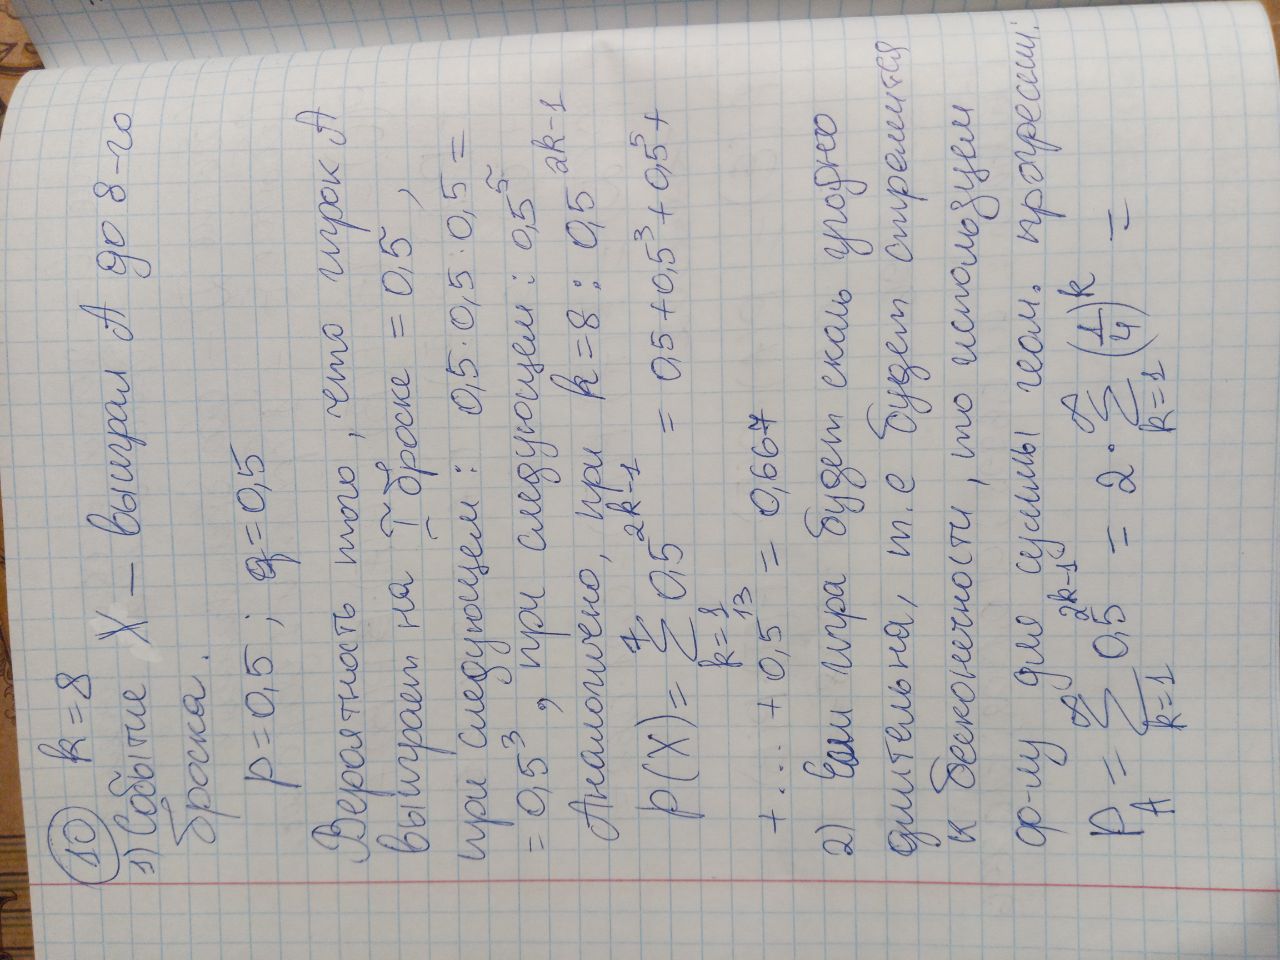 10 k=8
1) Событие X – выиграл А до 8-го
броска.
p=0,5 ; q=0,5
Вероятность того, что игрок А
выиграет на I броске = 0,5 ,
при следующем: 0,5·0,5·0,5=
=0,5³, при следующем: 0,5⁵
Аналогично, при k=8: 0,5^{2k-1}
P(X)= \sum_{k=1}^{7} 0,5^{2k-1} = 0,5+0,5³+0,5⁵+
+...+0,5^{13} = 0,667
2) Если игра будет сколь угодно
длительна, т.е будет стремится
к бесконечности, то используем
ф-лу для суммы геом. прогрессии:
P_A = \sum_{k=1}^{∞} 0,5^{2k-1} = 2·\sum_{k=1}^{∞} (1/4)^k =